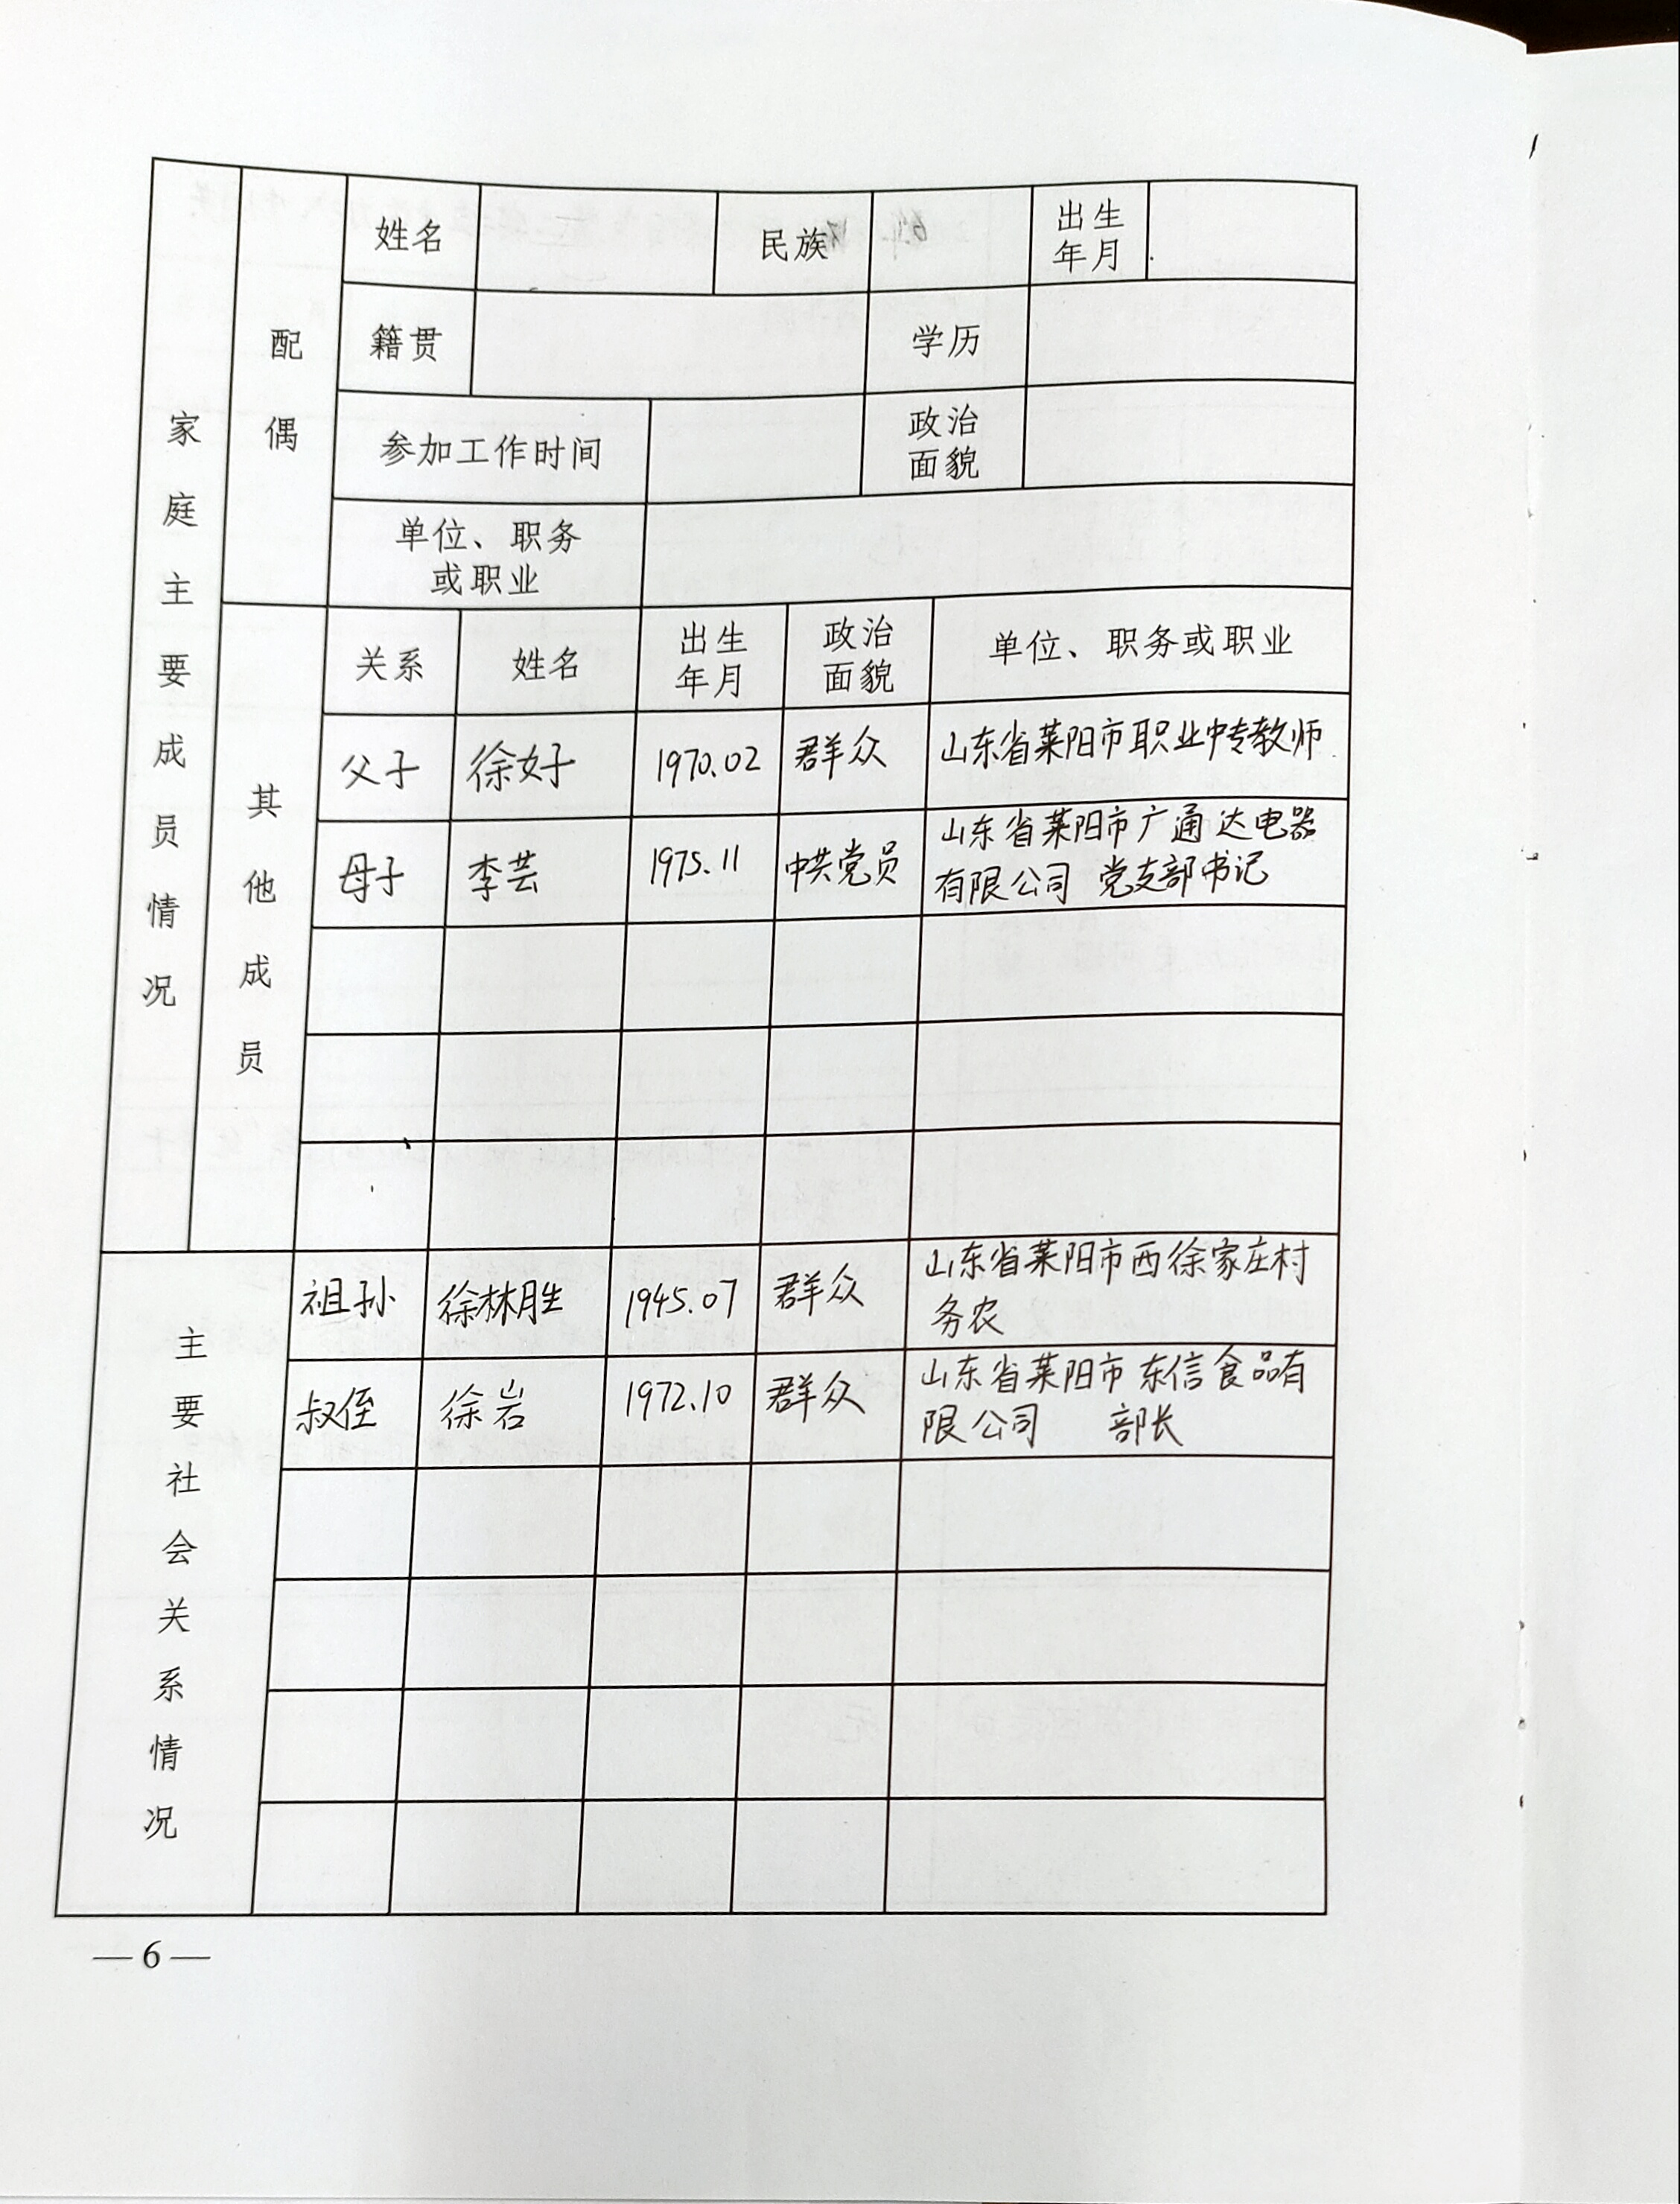 家庭主要成员情况
配偶
姓名 民族 出生年月
籍贯 学历
参加工作时间 政治面貌
单位、职务或职业
其他成员
关系 姓名 出生年月 政治面貌 单位、职务或职业
父子 徐好 1970.02 群众 山东省莱阳市职业中专教师
母子 李芸 1975.11 中共党员 山东省莱阳市广通达电器
有限公司 党支部书记
主要社会关系情况
祖孙 徐林胜 1945.07 群众 山东省莱阳市西徐家庄村
务农
叔侄 徐岩 1972.10 群众 山东省莱阳市东信食品有
限公司 部长
— 6 —